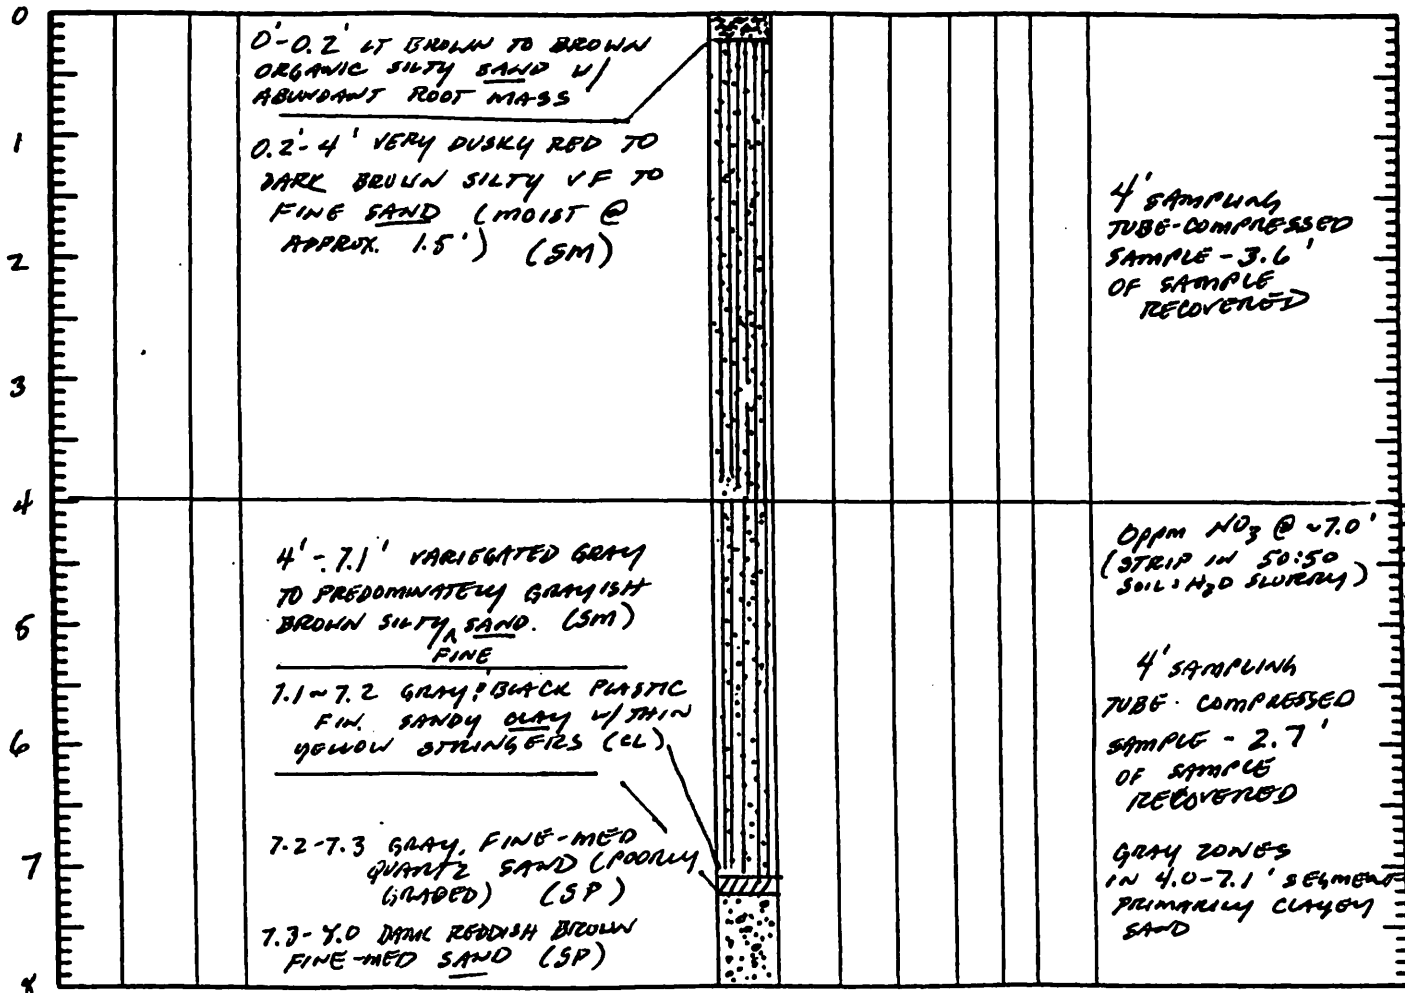 0
0'-0.2' LT BROWN TO BROWN
ORGANIC SILTY SAND W/
ABUNDANT ROOT MASS
1
0.2'-4' VERY DUSKY RED TO
DARK BROWN SILTY VF TO
FINE SAND (MOIST @
APPROX. 1.5') (SM)
2
3
4
4'-7.1' VARIEGATED GRAY
TO PREDOMINATELY GRAYISH
BROWN SILTY ^ SAND. (SM)
FINE
5
7.1-7.2 GRAY BLACK PLASTIC
FIN. SANDY CLAY W/ THIN
YELLOW STRINGERS (CL)
6
7.2-7.3 GRAY, FINE-MED
QUARTZ SAND (POORLY
GRADED) (SP)
7
7.3-8.0 DARK REDDISH BROWN
FINE-MED SAND (SP)
8
4' SAMPLING
TUBE-COMPRESSED
SAMPLE - 3.6'
OF SAMPLE
RECOVERED
0ppm NO3 @ ~7.0'
(STRIP IN 50:50
SOIL:H2O SLURRY)
4' SAMPLING
TUBE-COMPRESSED
SAMPLE - 2.7'
OF SAMPLE
RECOVERED
GRAY ZONES
IN 4.0-7.1' SEGMENT
PRIMARILY CLAYEY
SAND